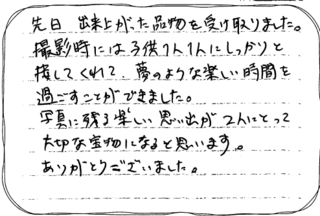 先日 出来上がった品物を受け取りました。
撮影時には子供1人1人にしっかりと
接してくれて、夢のような楽しい時間を
過ごすことができました。
写真に残る楽しい思い出が2人にとって
大切な宝物になると思います。
ありがとうございました。